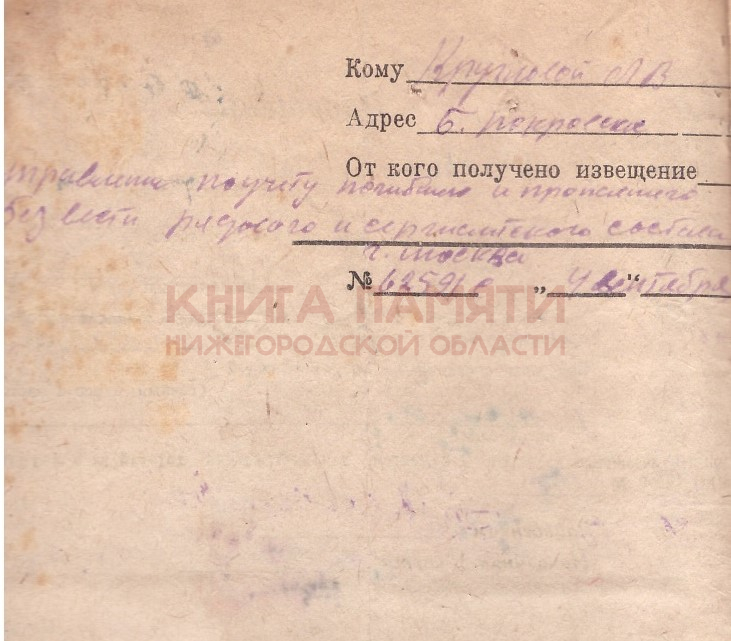 Кому Кругловой А В
Адрес Б. Покровская
От кого получено извещение
по учету погибшего и пропавшего
без вести рядового и сержантского состава
г. Москва
№ 62591с „ 4 “ сентября
КНИГА ПАМЯТИ
НИЖЕГОРОДСКОЙ ОБЛАСТИ